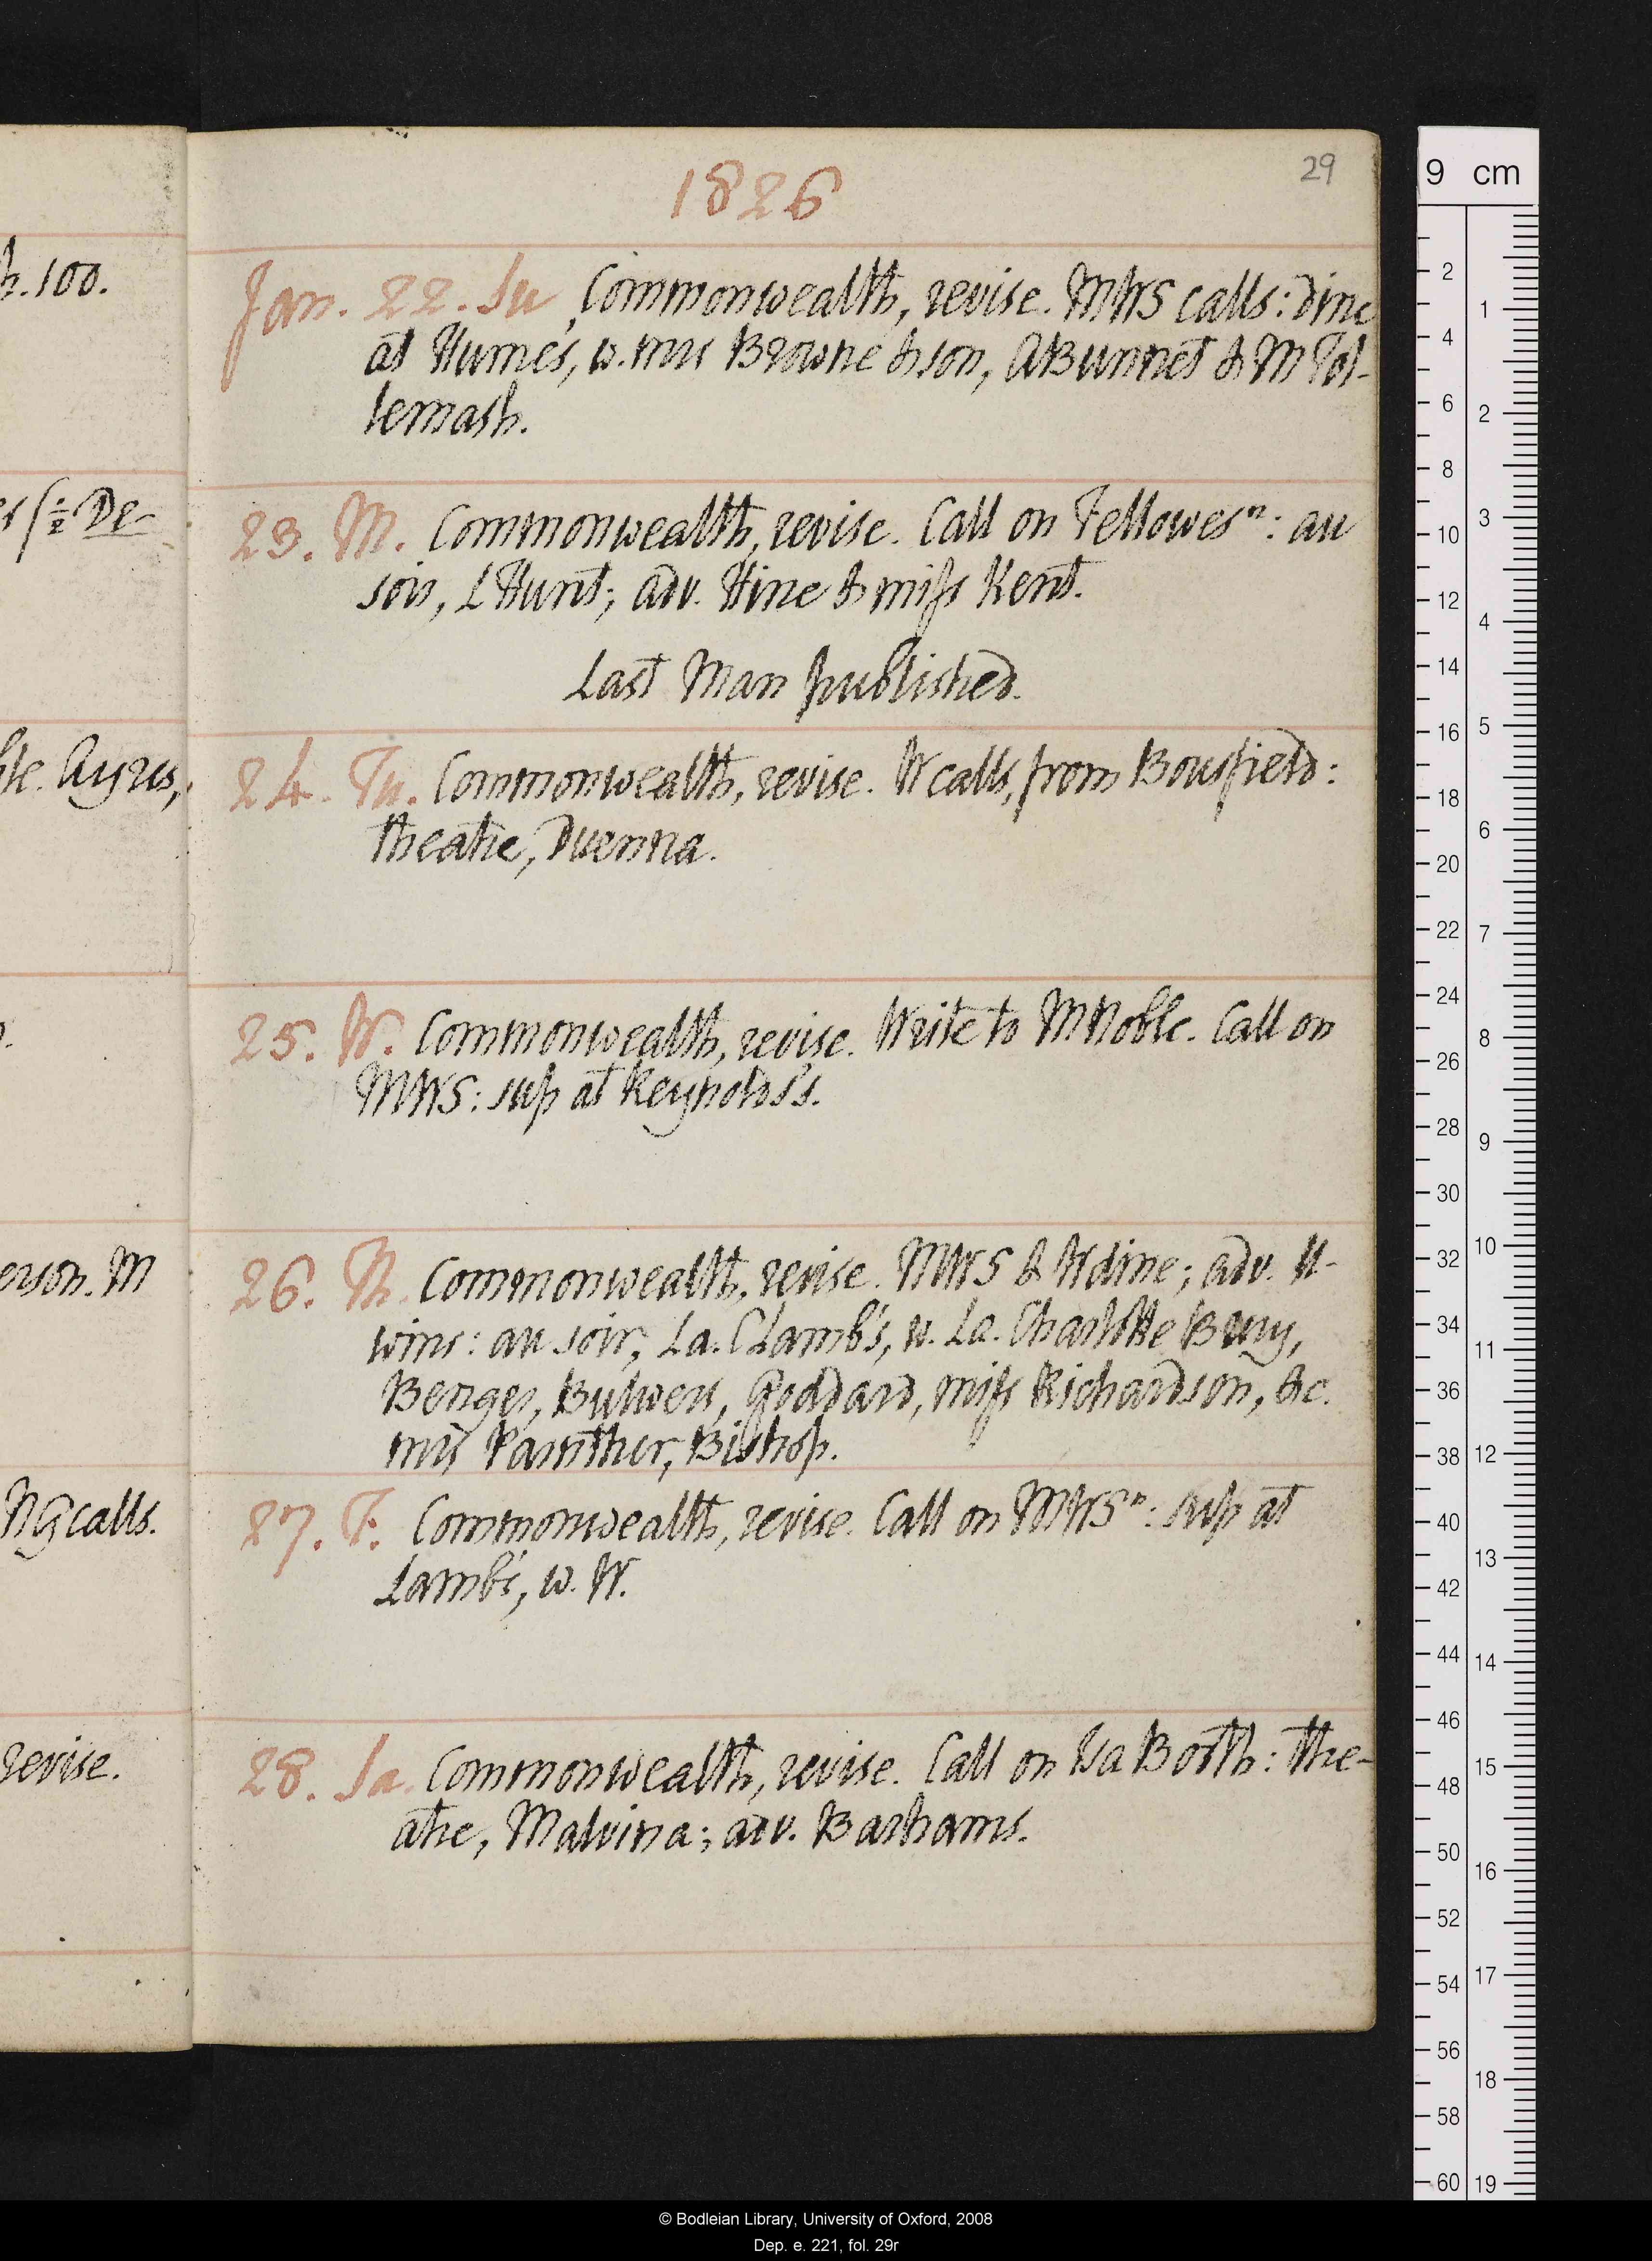 1826
29
Jan. 22. Su. Commonwealth, revise. MWS calls: dine
at Hume's, w. mrs Browne & son, ABunnet & M Tol-
lemash.
23. M. Commonwealth, revise. Call on Fellowes n: au
soir, LHunt; adv. Hine & miss Kent.
Last Man published.
24. Tu. Commonwealth, revise. W calls, from Bousfield:
theatre, Duenna.
25. W. Commonwealth, revise. Write to M Noble. Call on
MWS: sup at Reynolds's.
26. Th. Commonwealth, revise. MWS & W dine; adv. U-
wins: au soir, La. CLamb's, w. La. Charlotte Bury,
Benger, Bulwers, Goddard, miss Richardson, &c.
mrs Pannther, Bishop.
27. F. Commonwealth, revise. Call on MWS n: sup at
Lamb's, w. W.
28. Sa. Commonwealth, revise. Call on Isa Booth: the-
atre, Malvina; adv. Bashams.
h. 100.
Ayres,
erson. M
NG calls.
revise.
9 cm
2
4
6
8
10
12
14
16
18
20
22
24
26
28
30
32
34
36
38
40
42
44
46
48
50
52
54
56
58
60
1
2
3
4
5
6
7
8
9
10
11
12
13
14
15
16
17
18
19
© Bodleian Library, University of Oxford, 2008
Dep. e. 221, fol. 29r